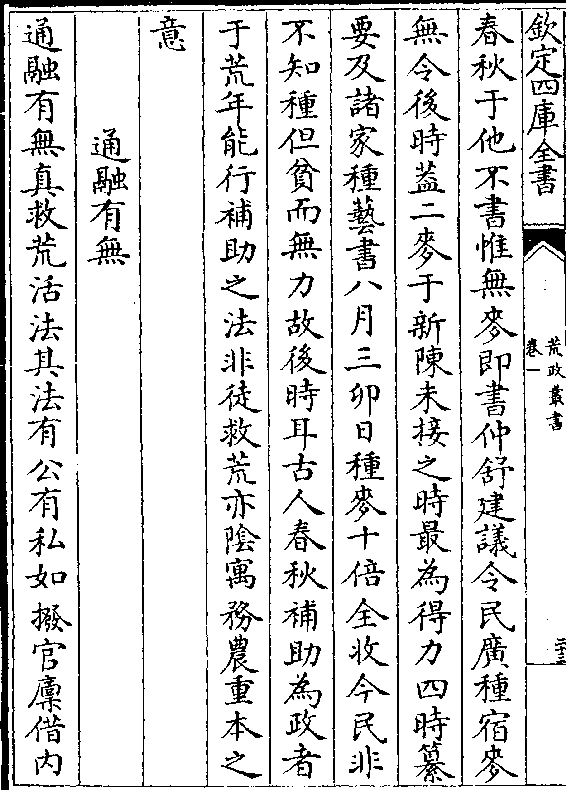 欽定四庫全書
荒政叢書
卷一
春秋于他不書惟無麥即書仲舒建議令民廣種宿麥
無令後時葢二麥于新陳未接之時最為得力四時纂
要及諸家種藝書八月三卯日種麥十倍全收今民非
不知種但貧而無力故後時耳古人春秋補助為政者
于荒年能行補助之法非徒救荒亦陰寓務農重本之
意
通融有無
通融有無真救荒活法其法有公有私如撥官廩借内